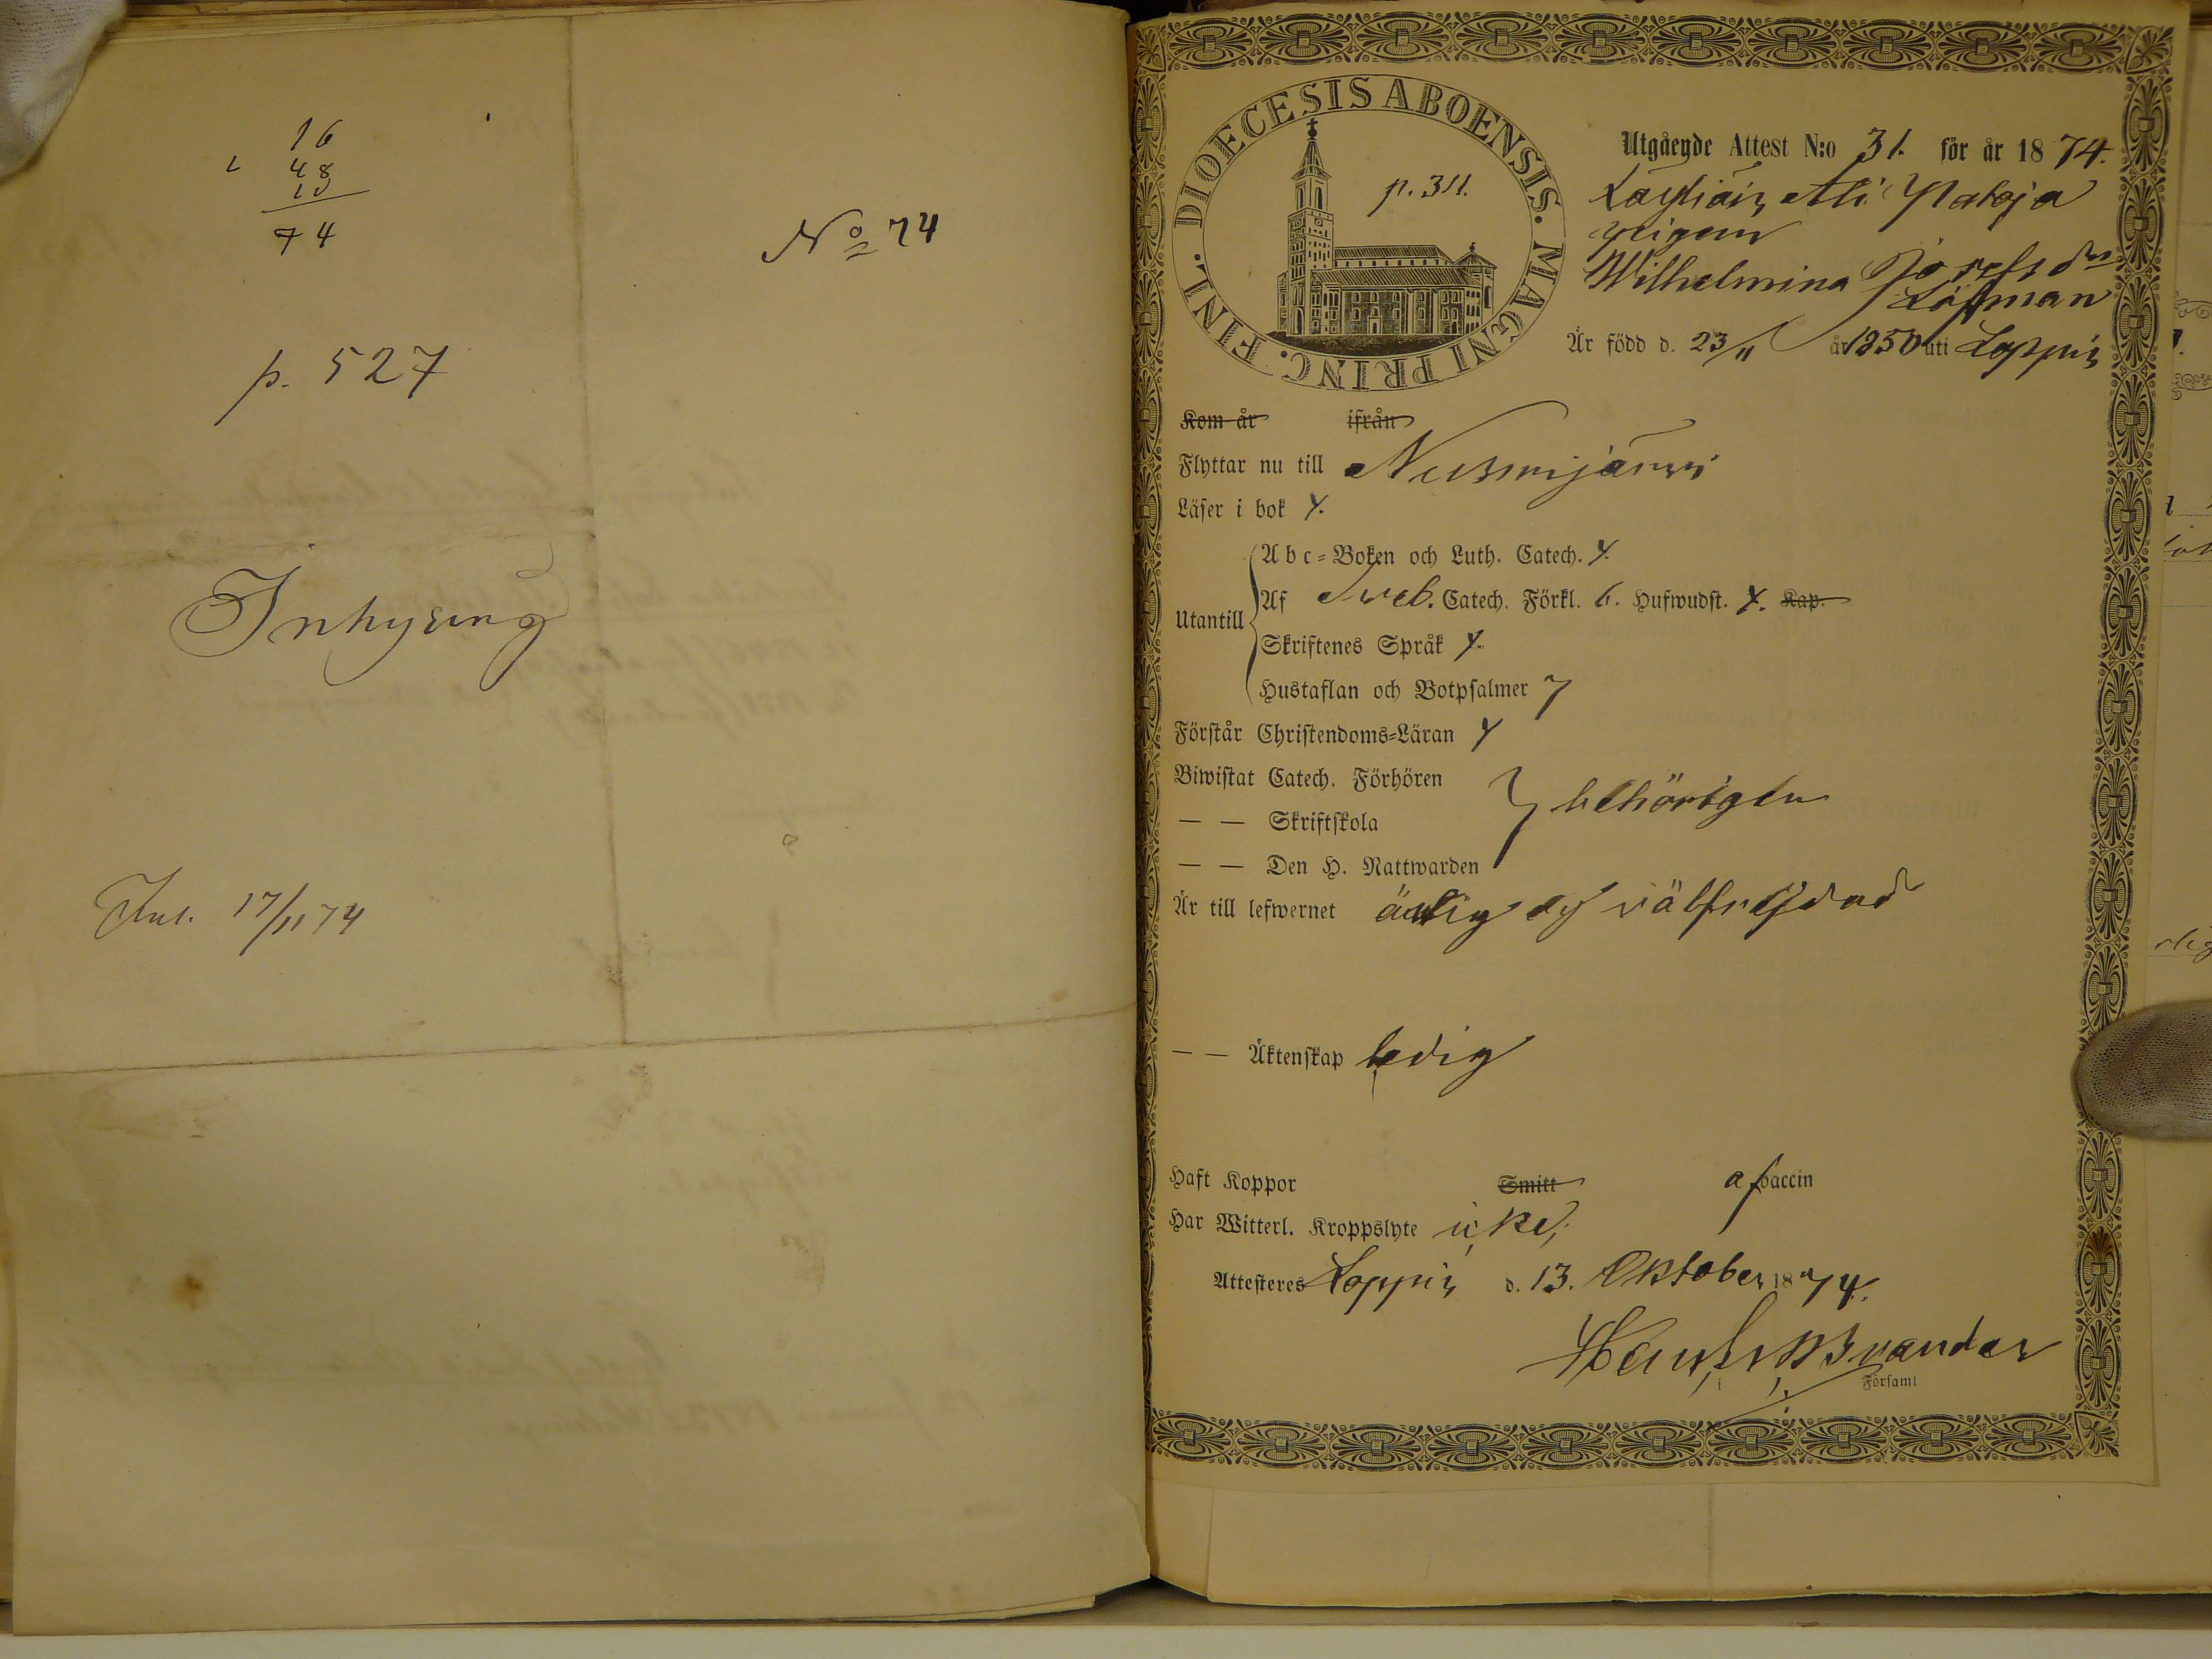 16
48
10
74
No 74
p. 527
Inhysing
Ank. 17/11 74
DIOECESIS ABOENSIS. MAGNI PRINC. FINL.
p. 311.
Utgående Attest N:o 31. för år 1874.
Ali Pataja
pigan
Wilhelmina Josefsdr
Löfman
Är född d. 23/11 år 1850 uti Loppis
Kom år ifrån
Flyttar nu till Nurmijärvi
Läser i bok 4.
Utantill
Abc-Boken och Luth. Catech. 4.
Af Sveb. Catech. Förkl. 6. Hufwudst. 4. Kap.
Skriftenes Språk 4.
Hustaflan och Botpsalmer 7
Förstår Christendoms-Läran 4
Biwistat Catech. Förhören
— — Skriftskola
behörigen
— — Den H. Nattwarden
Är till lefwernet ärlig och välfrejdad
— — Äktenskap ledig
Haft Koppor Smitt af vaccin
Har Witterl. Kroppslyte icke,
Attesteres Loppis d. 13. Oktober 1874.
Brander
i Församl